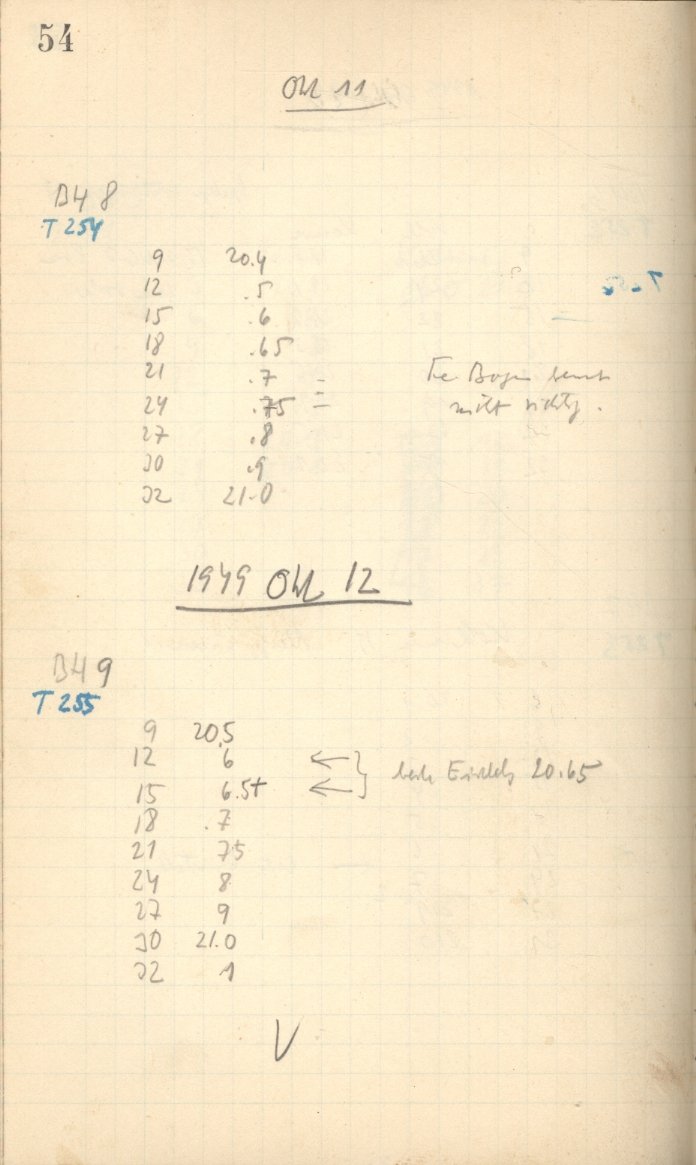 54
Okt 11
BH 8
T 254
9 20.4
12 .5
15 .6
18 .65
21 .7
24 .75
27 .8
30 .9
32 21.0
Fe Bogen
nicht richtig.
1949 Okt 12
BH 9
T 255
9 20.5
12 6
15 6.5+
beste Einstellg 20.65
18 .7
21 75
24 8
27 9
30 21.0
32 1
V